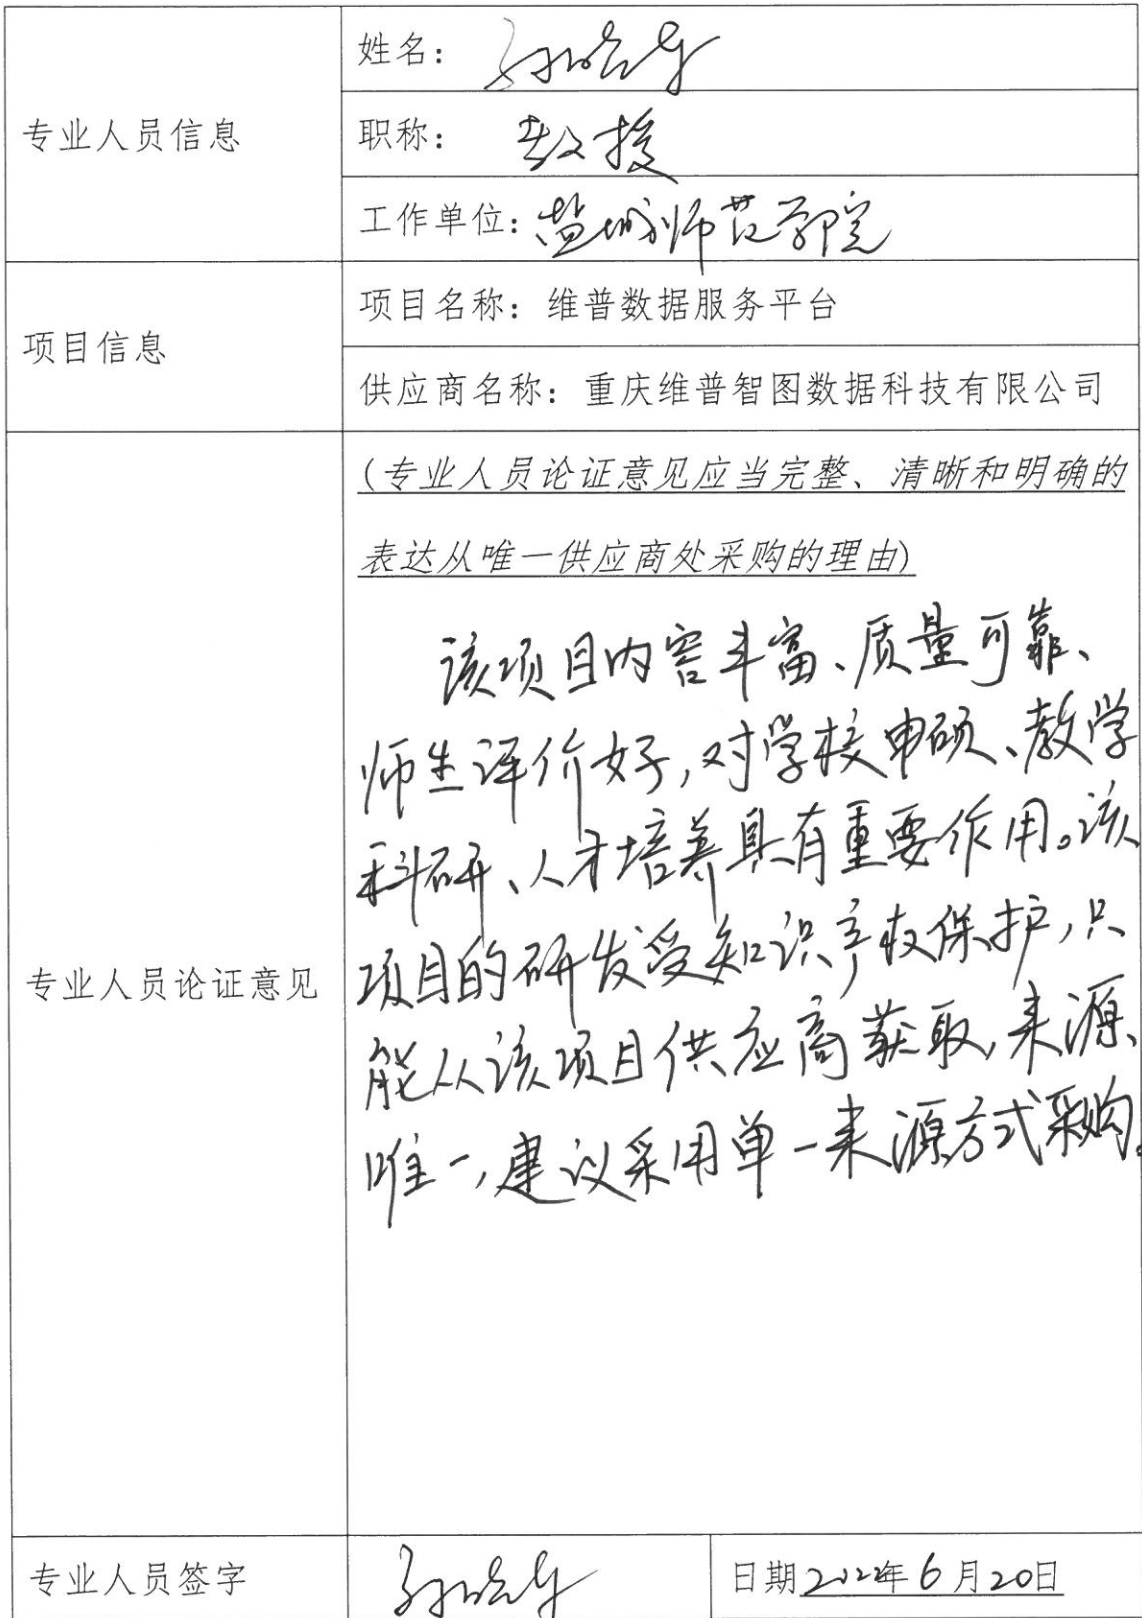 专业人员信息
姓名：
职称： 教授
工作单位：盐城师范学院
项目信息
项目名称：维普数据服务平台
供应商名称：重庆维普智图数据科技有限公司
专业人员论证意见
(专业人员论证意见应当完整、清晰和明确的
表达从唯一供应商处采购的理由)
该项目内容丰富、质量可靠、
师生评价好,对学校申硕、教学
科研、人才培养具有重要作用。该
项目的研发受知识产权保护,只
能从该项目供应商获取,来源
唯一,建议采用单一来源方式采购。
专业人员签字
日期2022年6月20日